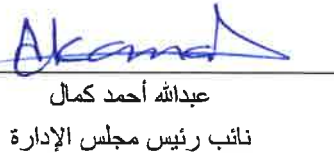 عبدالله أحمد كمال
نائب رئيس مجلس الإدارة